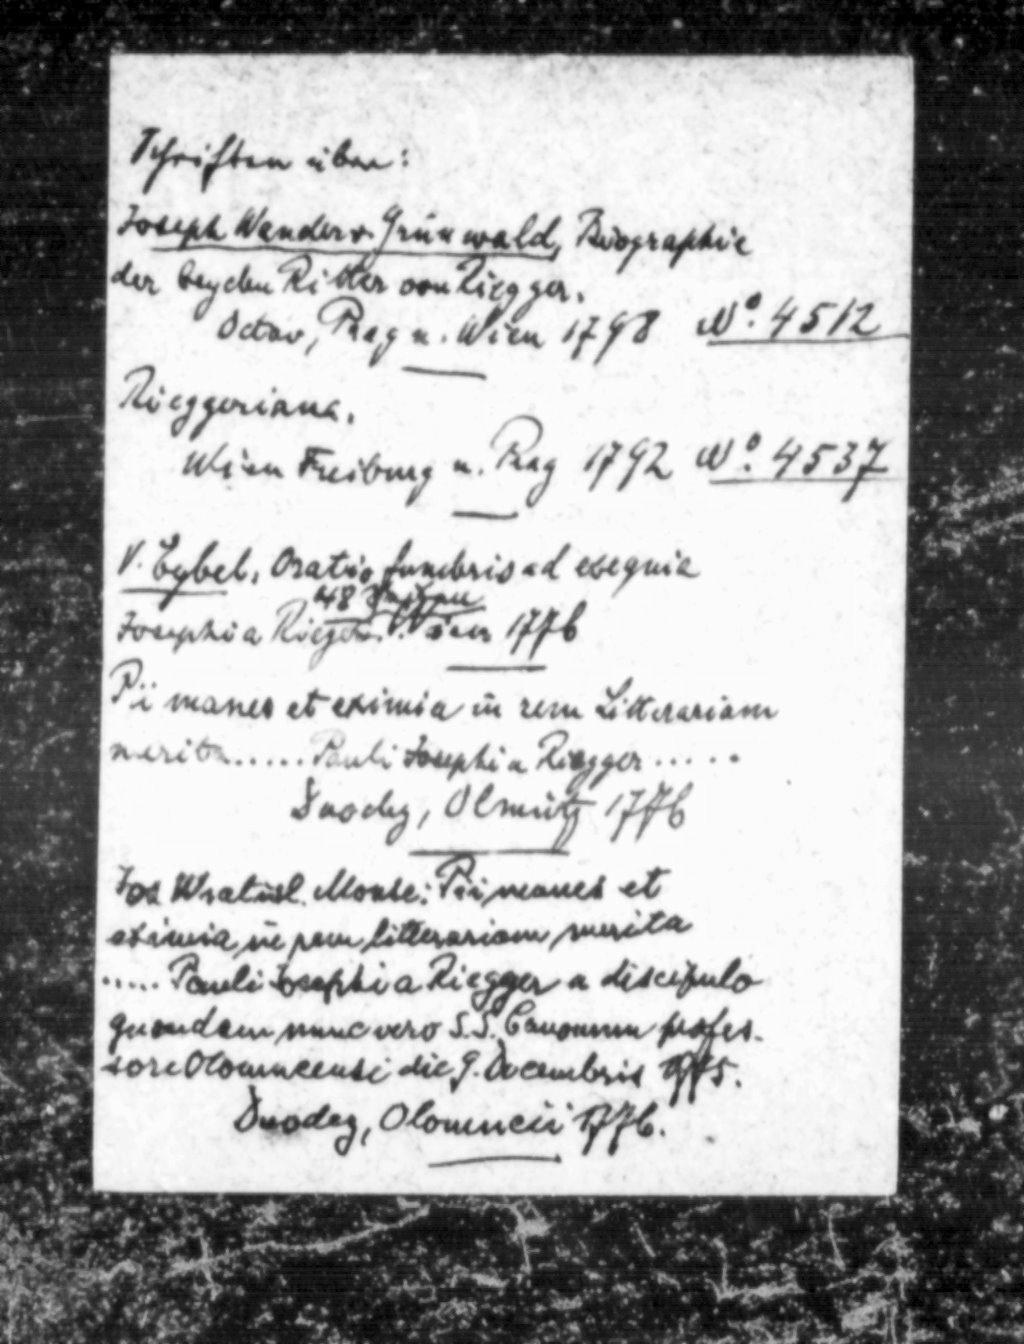 Schriften über:
Joseph Wander v. Grünwald, Biographie
der beyden Ritter von Riegger.
Octav, Prag u. Wien 1798 No. 4512
Rieggeriana.
Wien Freiburg u. Prag 1792 No. 4537
V. Eybel, Oratio funebris ad exequia
48
Josephi a Riegger. Wien 1776
Pii manes et eximia in rem Litterariam
merita ..... Pauli Josephi a Riegger .....
Duodez, Olmütz 1776
Jos Wratisl. Monse: Pii manes et
eximia in rem litterariam merita
..... Pauli Josephi a Riegger a discipulo
quondam nunc vero S.S. Canonum profes-
sore Olomucensi die 9. Decembris 1775.
Duodez, Olomucii 1776.